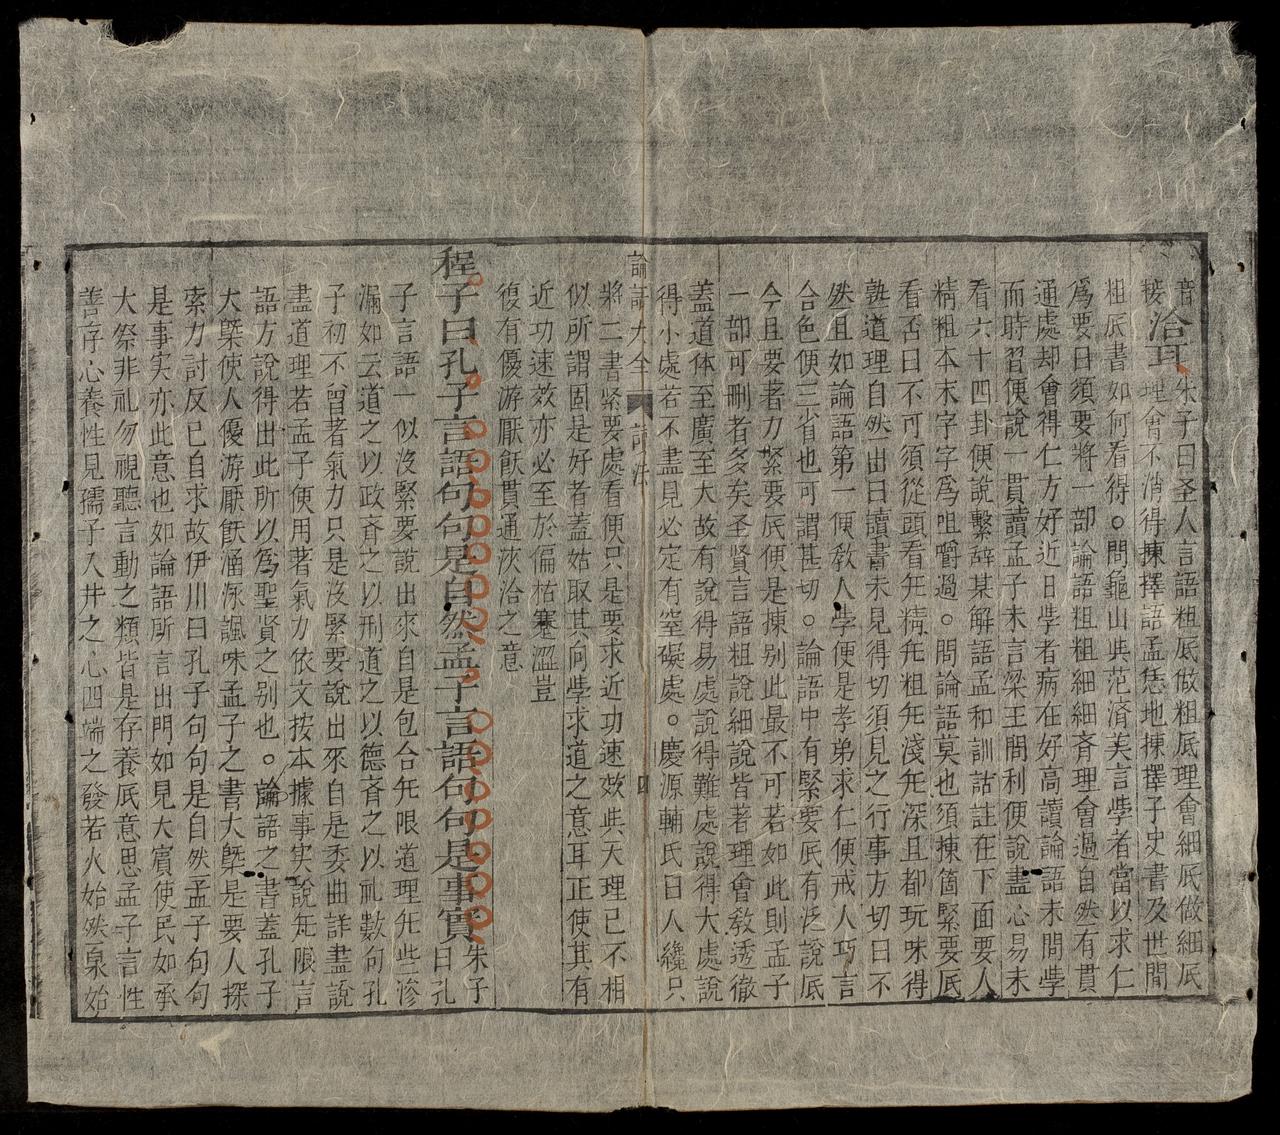 音洽耳朱子曰圣人言語粗底做粗底理會細底做細底
接 理會不消得揀擇語孟恁地揀擇子史書及世間
粗底書如何看得○問龜山與范済美言學者當以求仁
爲要曰須要將一部論語粗粗細細斉理會過自然有貫
通處却會得仁方好近日學者病在好高讀論語未問學
而時習便說一貫讀孟子未言梁王問利便說盡心易未
看六十四卦便說繫辞某解語孟和訓詁註在下面要人
精粗本末字字爲咀嚼過○問論語莫也須揀箇緊要底
看否曰不可須從頭看无精无粗无淺无深且都玩味得
熟道理自然出曰讀書未見得切須見之行事方切曰不
然且如論語第一便敎人學便是孝弟求仁便戒人巧言
令色便三省也可謂甚切○論語中有緊要底有泛說底
今且要著力緊要底便是揀别此最不可若如此則孟子
一部可刪者多矣圣賢言語粗說細說皆著理會敎透徹
蓋道体至廣至大故有說得易處說得難處說得大處說
得小處若不盡見必定有窒礙處○慶源輔氏曰人纔只
論語大全 讀法 四
將二書緊要處看便只是要求近功速效與天理已不相
似所謂固是好者蓋姑取其向學求道之意耳正使其有
近功速效亦必至於偏枯蹇澀豈
復有優游厭飫貫通浹洽之意
程子曰孔子言語句句是自然孟子言語句句是事實朱子
曰孔
子言語一似没緊要說出來自是包含无限道理无些滲
漏如云道之以政斉之以刑道之以德斉之以礼數句孔
子初不曾著氣力只是没緊要說出來自是委曲詳盡說
盡道理若孟子便用著氣力依文按本據事実說无限言
語方說得出此所以爲聖賢之别也○論語之書蓋孔子
大槩使人優游厭飫涵泳諷味孟子之書大槩是要人探
索力討反己自求故伊川曰孔子句句是自然孟子句句
是事実亦此意也如論語所言出門如見大賓使民如承
大祭非礼勿視聽言動之類皆是存養底意思孟子言性
善存心養性見孺子入井之心四端之發若火始然泉始